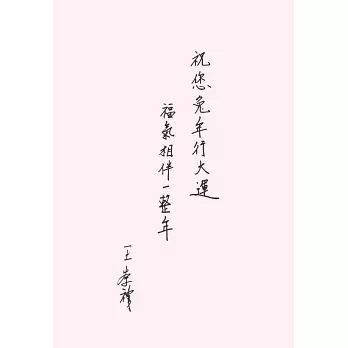 祝您兔年行大運
福氣相伴一整年
王崇禮